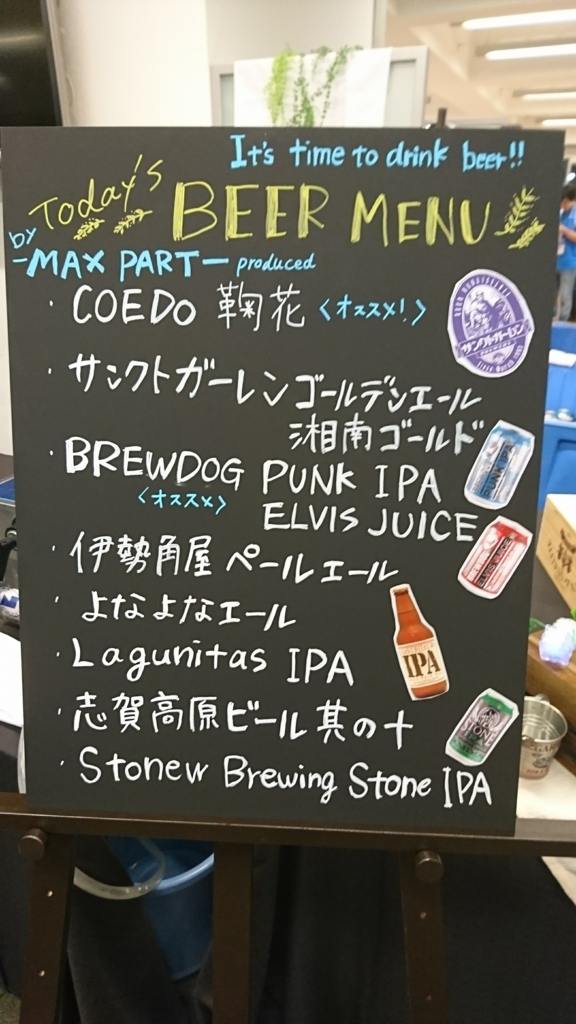 It's time to drink beer!!
Today's BEER MENU
by
-MAX PART- produced
・COEDO 鞠花 <オススメ!>
サンクトガーレン
・サンクトガーレン ゴールデンエール
湘南ゴールド
・BREWDOG PUNK IPA
<オススメ> ELVIS JUICE
PUNK IPA
ELVIS JUICE
・伊勢角屋 ペールエール
・よなよなエール
・Lagunitas IPA
IPA
・志賀高原ビール 其の十
STONE
・Stonew Brewing Stone IPA